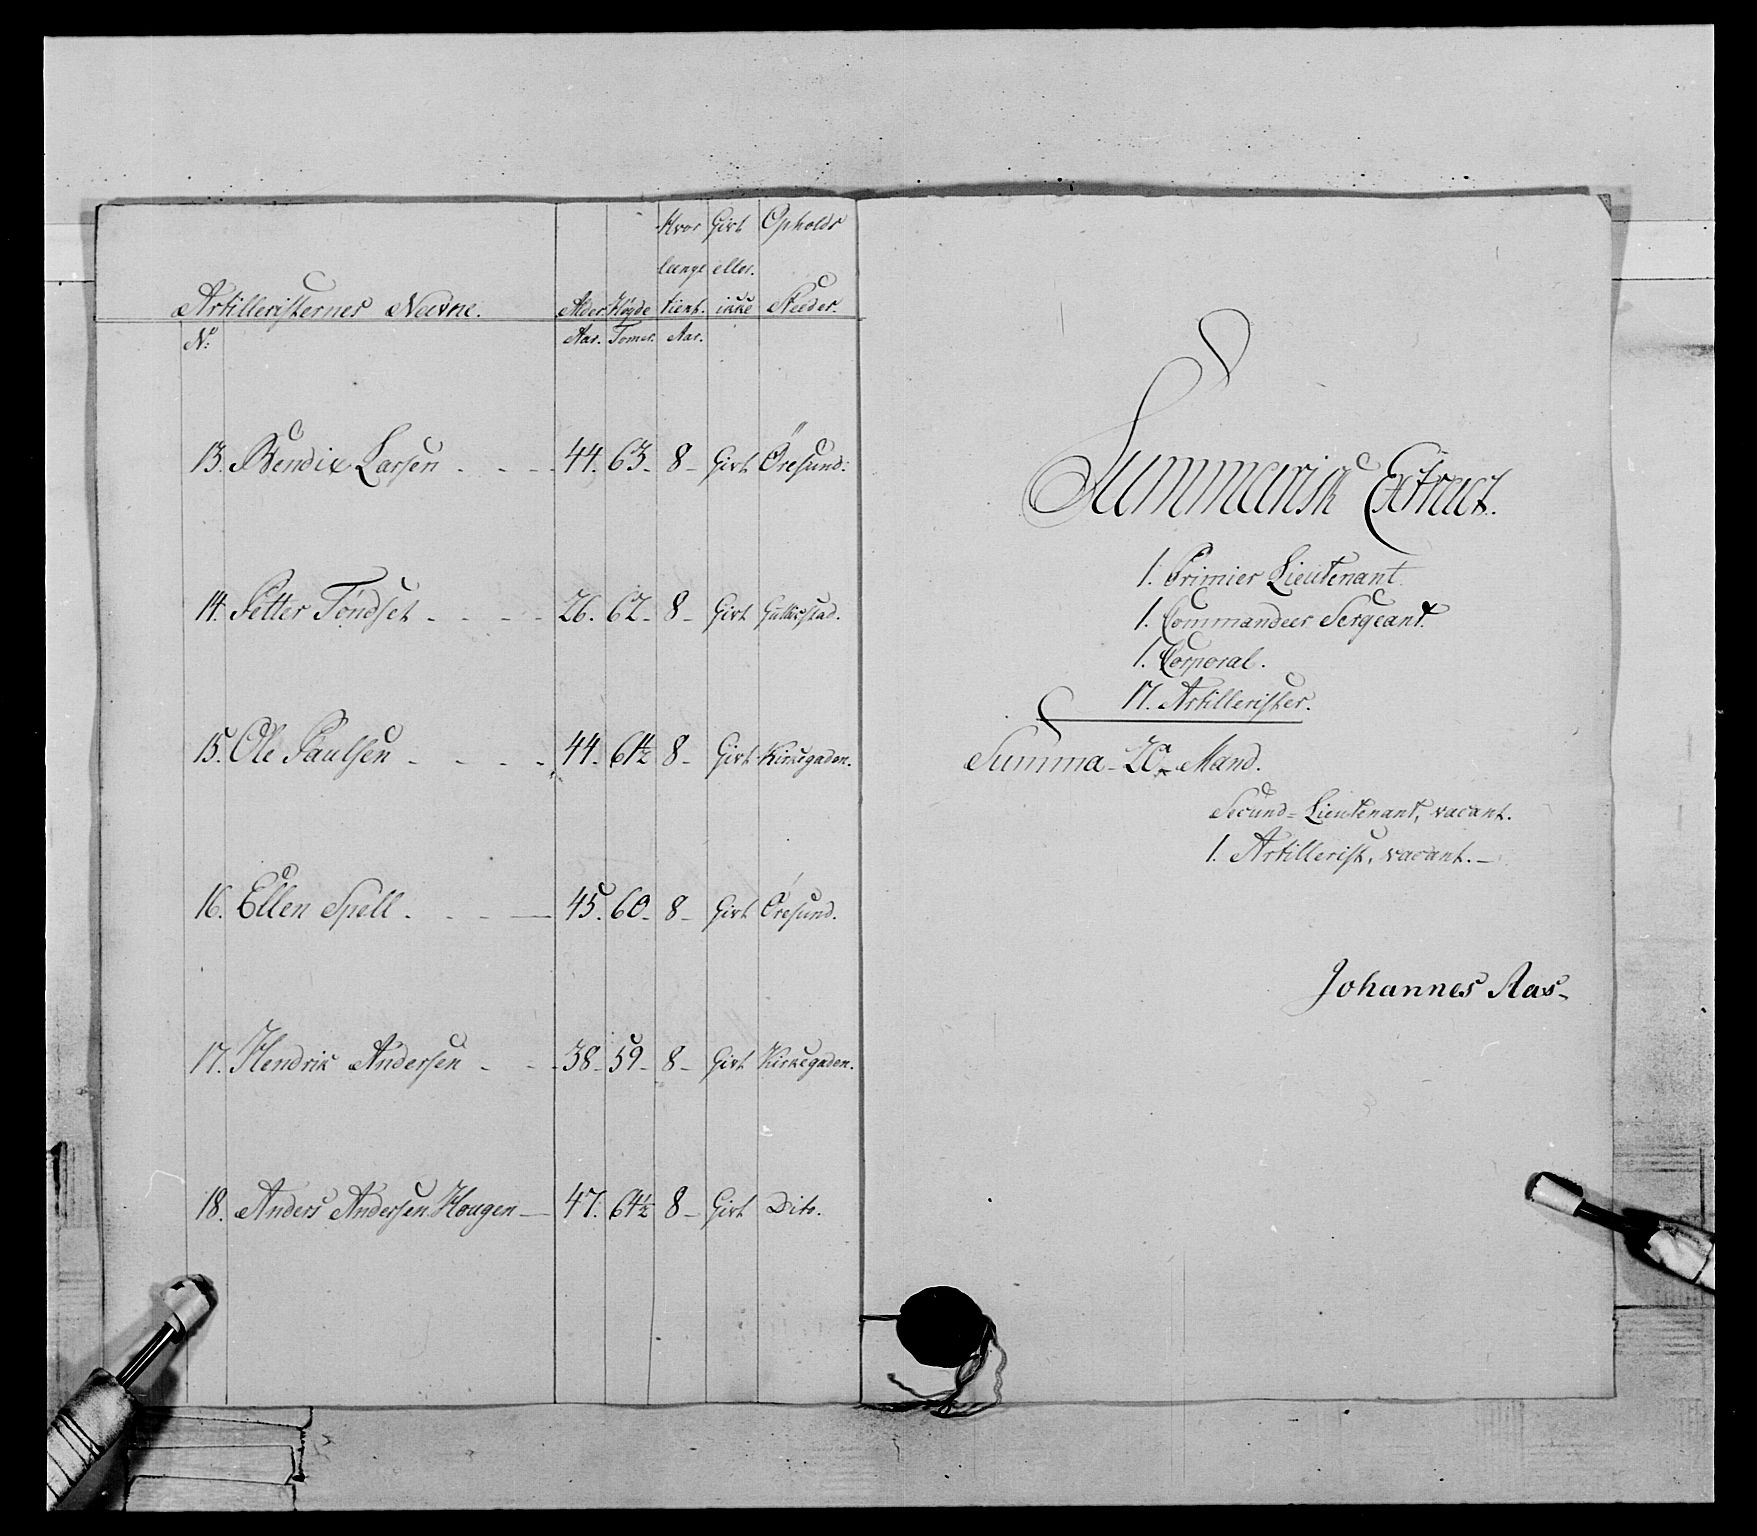 Hvor Givt Opholds
længe eller
Artilleristernes Navne. Alder Høyde tient. ikke Stæder.
No: Aar. Tomer. Aar.
13. Bendix Larsen - - - 44. 63- 8- Givt Öresund:
14. Petter Tøndset - - - - 26. 62- 8- Givt
15. Ole Paulsen - - - - 44. 61½ 8- Givt Kirkegaden.
16. Ellen Spell. - - - 45. 60- 8- Givt Öresund.
17. Hendrik Andersen - - - 38- 59- 8- Givt Kirkegaden.
18. Anders Andersen Hougen - 47. 64½ 8- Givt Dito.
Summarisk Extract.
1. Primier Lieutenant
1. Commandeer Sergeant
1. Corporal.
17. Artillerister.
Summa - 20 - Mand.
Secund-Lieutenant, vacant.
1. Artillerist, vacant. -
Johannes Aas-